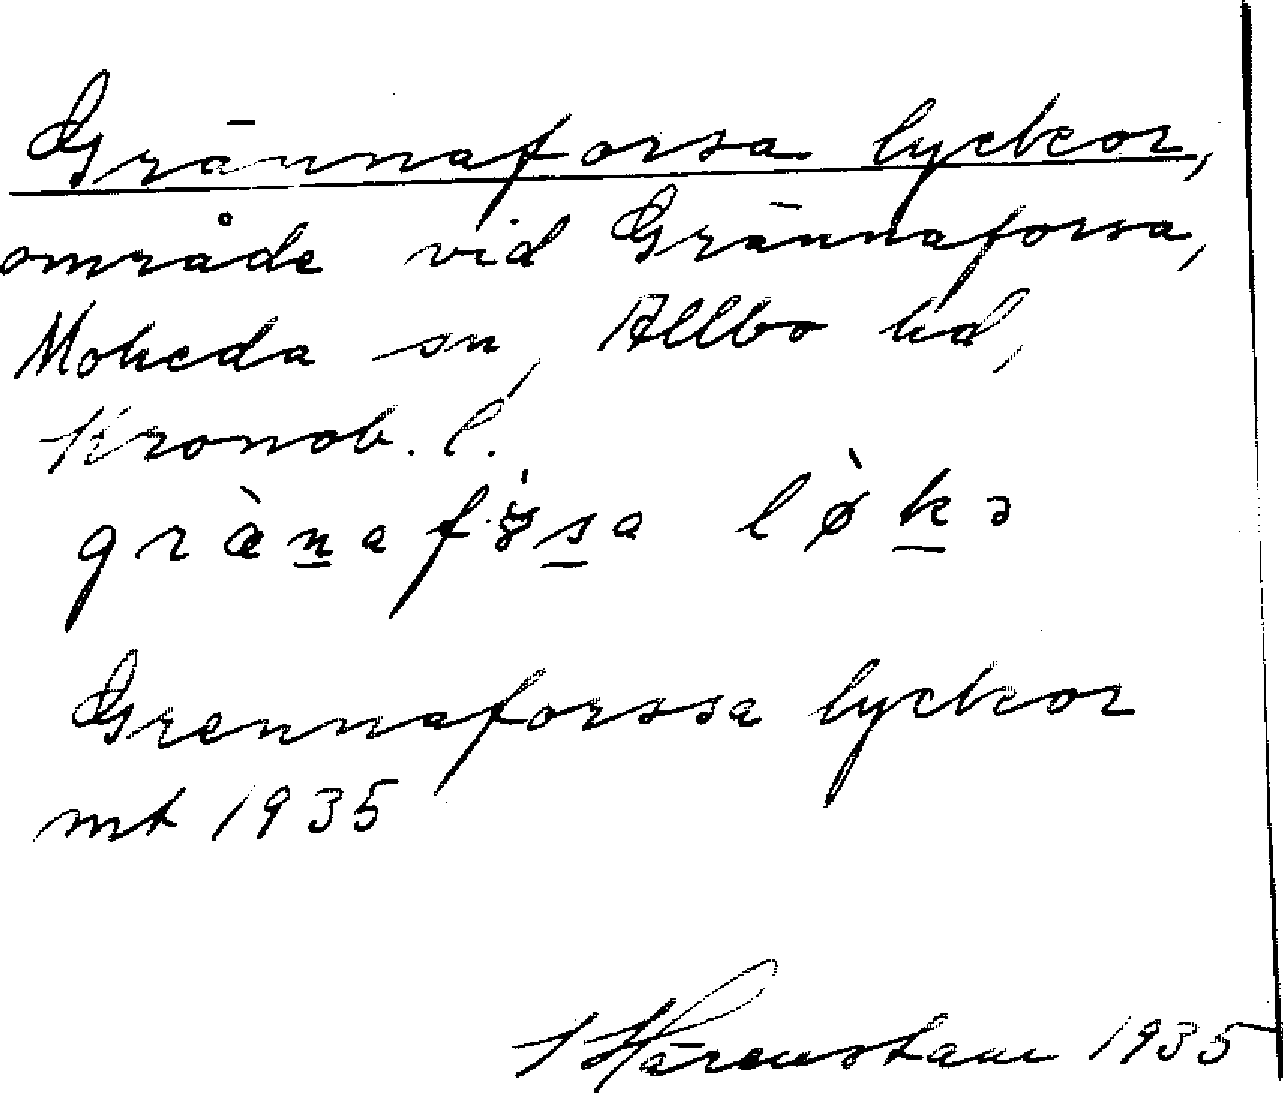 Grännaforsa lyckor,
område vid Grännaforsa,
Moheda sn, Allbo hd,
Kronob. l.
Grennaforssa lyckor
mt 1935
Härenstam 1935